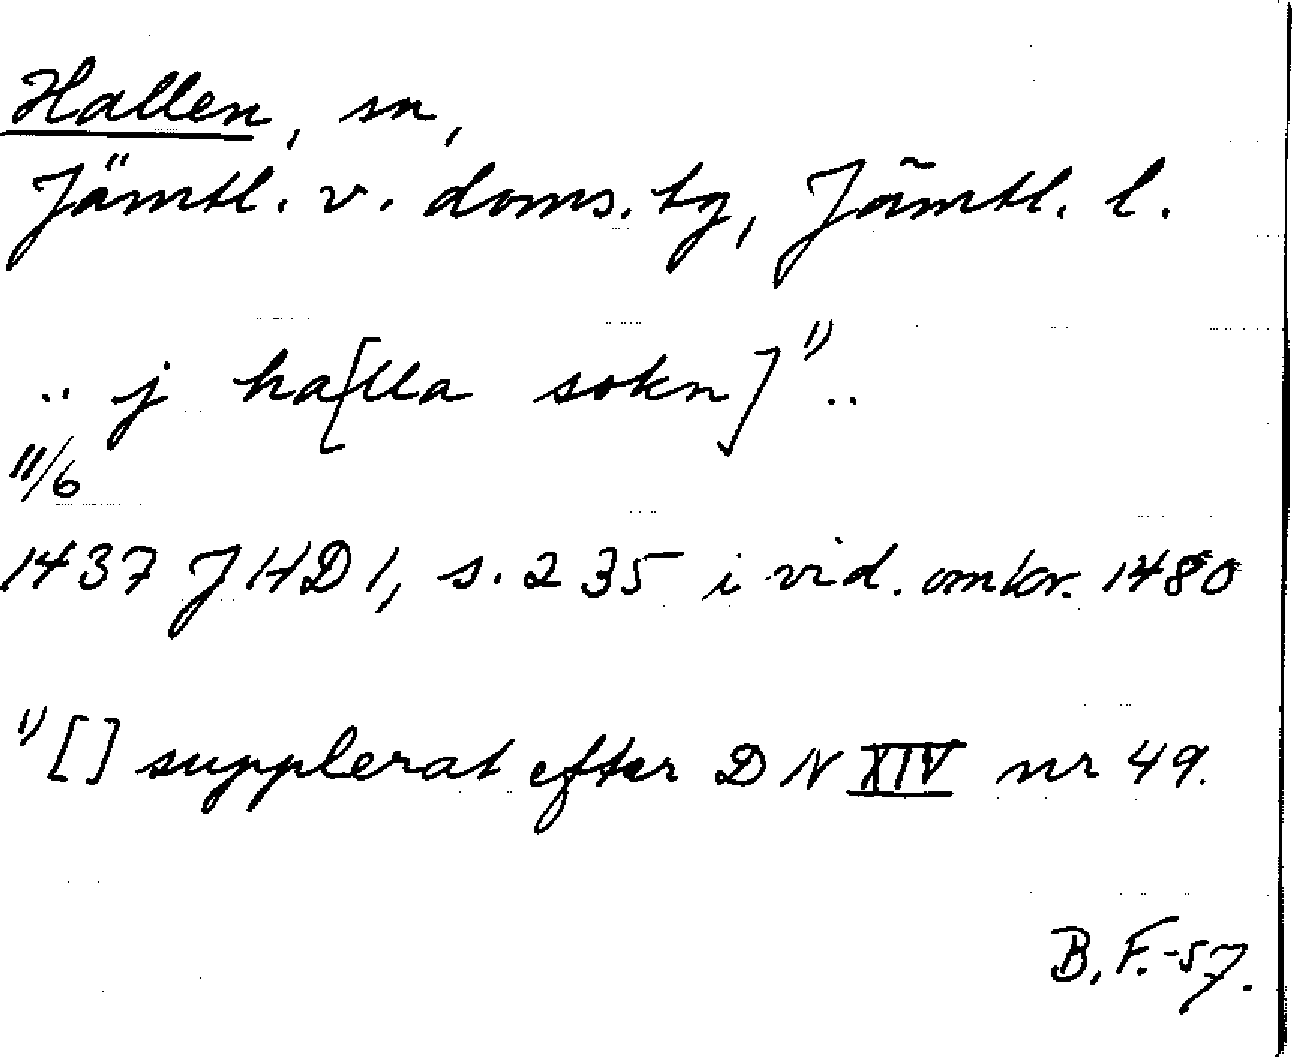 Hallen, sn,
Jämtl. v. doms. tg, Jämtl. l.
.. j ha[lla sokn]¹⁾ ..
11/6
1437 JHD 1, s. 235 i vid. omkr. 1480
¹⁾ [ ] supplerat efter DN XIV nr 49.
B. F. -57.